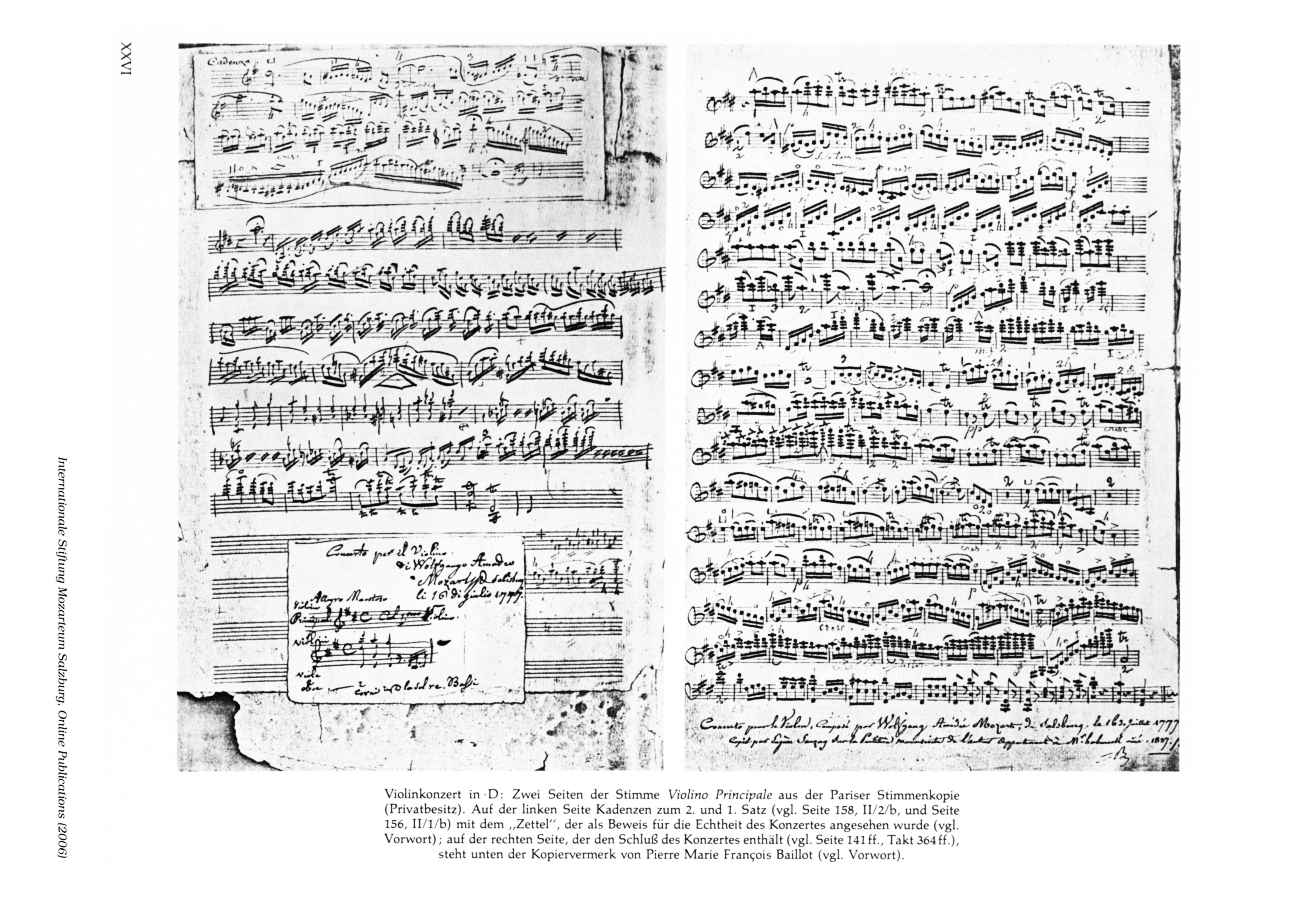 XXVI
Cadenza
Concerto per il Violino.
di Wolfgango Amadeo
Mozart
li 16 di
Allegro Maestoso
Violino
Principale
Viola
oboe
2 Corni
Bassi
Concerto pour le Violon, Composé par Wolfgang Amédée Mozart, de Salzbourg, le 16 de Juillet 1777
Copié par Eugène Sauzay sur la Partition manuscrite de l'auteur appartenant à Mr habeneck ainé. 1837.
B
Violinkonzert in D: Zwei Seiten der Stimme Violino Principale aus der Pariser Stimmenkopie
(Privatbesitz). Auf der linken Seite Kadenzen zum 2. und 1. Satz (vgl. Seite 158, II/2/b, und Seite
156, II/1/b) mit dem „Zettel“, der als Beweis für die Echtheit des Konzertes angesehen wurde (vgl.
Vorwort); auf der rechten Seite, der den Schluß des Konzertes enthält (vgl. Seite 141 ff., Takt 364 ff.),
steht unten der Kopiervermerk von Pierre Marie François Baillot (vgl. Vorwort).
Internationale Stiftung Mozarteum Salzburg, Online Publications (2006)